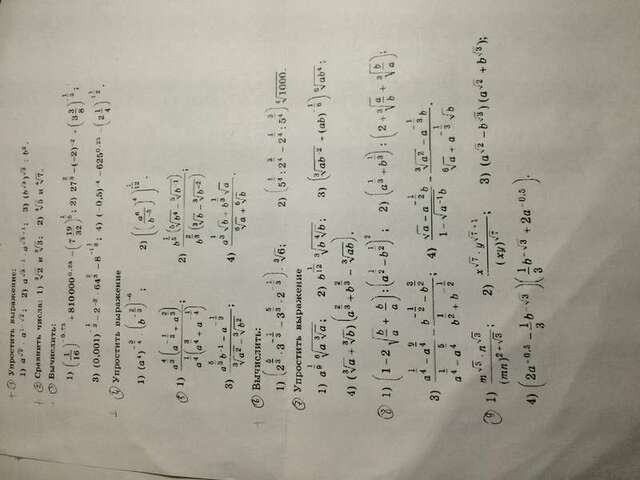 + ① Упростить выражение:
1) a^{√2} · a^{1-√2}; 2) a^{√3-1} · a^{√3+1}; 3) (b^{√3})^{√3} : b².
+ ② Сравнить числа: 1) ∛2 и ∛3; 2) ⁵√5 и ⁴√7.
③ Вычислить:
1) (1/16)^{-0,75} + 810000^{0,25} - (7 19/32)^{1/5}; 2) 27^{2/3} - (-2)^{-2} + (3 3/8)^{-1/3};
3) (0,001)^{-1/3} - 2^{-2} · 64^{2/3} - 8^{-1 1/3}; 4) (-0,5)^{-4} - 625^{0,25} - (2 1/4)^{-1 1/2}.
④ Упростить выражение
1) (a⁴)^{-3/4} · (b^{-2/3})^{-6}; 2) ((a⁶/b^{-3})⁴)^{1/12}
⑤ 1) a^{4/3}(a^{-1/3} + a^{2/3}) / a^{1/4}(a^{3/4} + a^{-1/4}); 2) b^{1/5}(⁵√b⁴ - ⁵√b^{-1}) / b^{2/3}(∛b - ∛b^{-2});
3) a^{5/3}b^{-1} - a^{-1/3} / ∛a² - ∛b²; 4) a^{1/3}√b + b^{1/3}√a / ⁶√a + ⁶√b.
+ ⑥ Вычислить:
1) (2^{5/3} · 3^{-1/3} - 3^{5/3} · 2^{-1/3}) · ∛6; 2) (5^{1/4} : 2^{3/4} - 2^{1/4} : 5^{3/4}) · ⁴√1000.
⑦ Упростить выражение
1) a^{1/9} ⁶√(a ∛a); 2) b^{1/12} ∛(b ⁴√b); 3) (∛(ab^{-2}) + (ab)^{-1/6}) ⁶√(ab⁴);
4) (∛a + ∛b)(a^{2/3} + b^{2/3} - ∛(ab)).
⑧ 1) (1 - 2√(b/a) + b/a) : (a^{1/2} - b^{1/2})²; 2) (a^{1/3} + b^{1/3}) : (2 + ∛(a/b) + ∛(b/a));
3) a^{1/4} - a^{9/4} / a^{1/4} - a^{5/4} - b^{-1/2} - b^{3/2} / b^{1/2} + b^{-1/2}; 4) √a - a^{-1/2}b / 1 - √(a^{-1}b) - ∛a² - a^{-1/3}b / ⁶√a + a^{-1/3}√b.
⑨ 1) m^{√3} · n^{√3} / (mn)^{2+√3}; 2) x^{√7} · y^{√7+1} / (xy)^{√7}; 3) (a^{√2} - b^{√3})(a^{√2} + b^{√3});
4) (2a^{-0,5} - 1/3 b^{-√3})(1/3 b^{-√3} + 2a^{-0,5}).